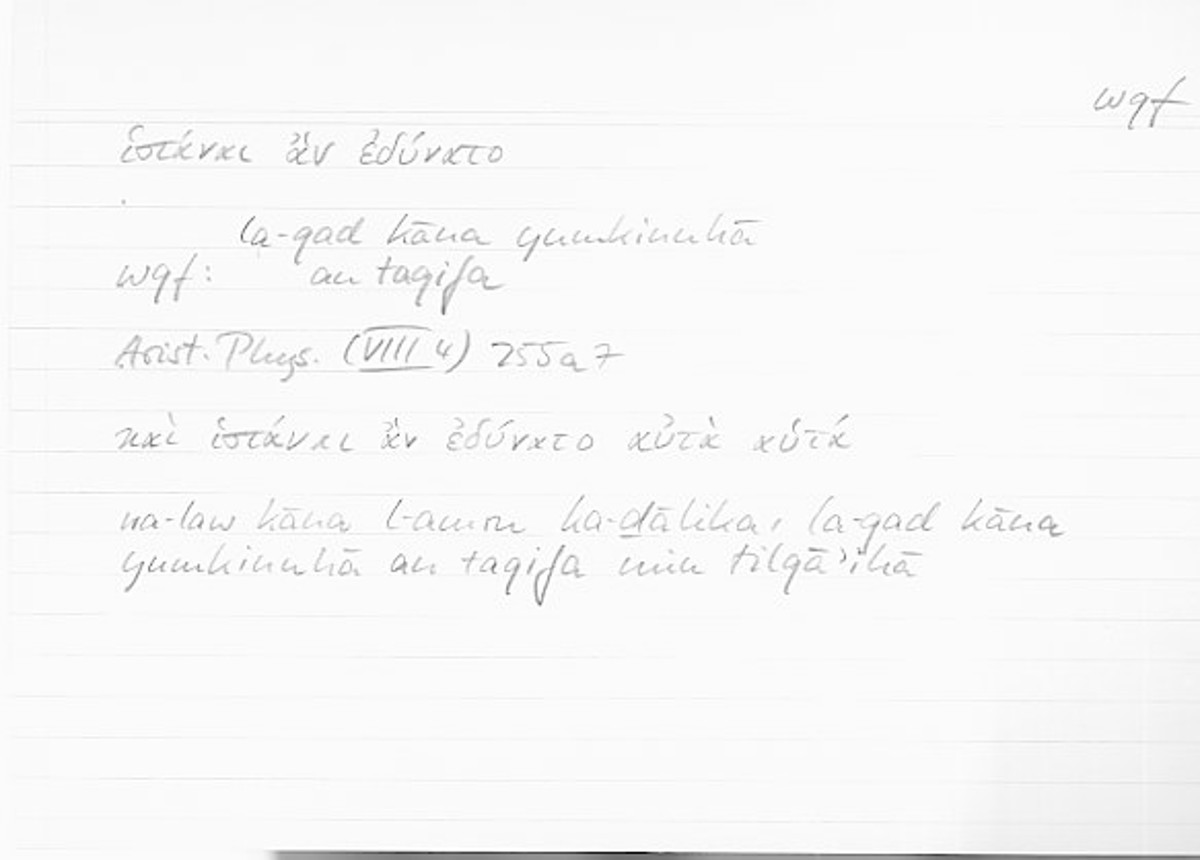 wqf
ἱστάναι ἂν ἐδύνατο
la-qad kāna yumkinuhā
wqf: an taqifa
Arist. Phys. (VIII 4) 255a7
καὶ ἱστάναι ἂν ἐδύνατο αὐτὰ αὑτά
wa-law kāna l-amru ka-ḏālika, la-qad kāna
yumkinuhā an taqifa min tilqāʾihā